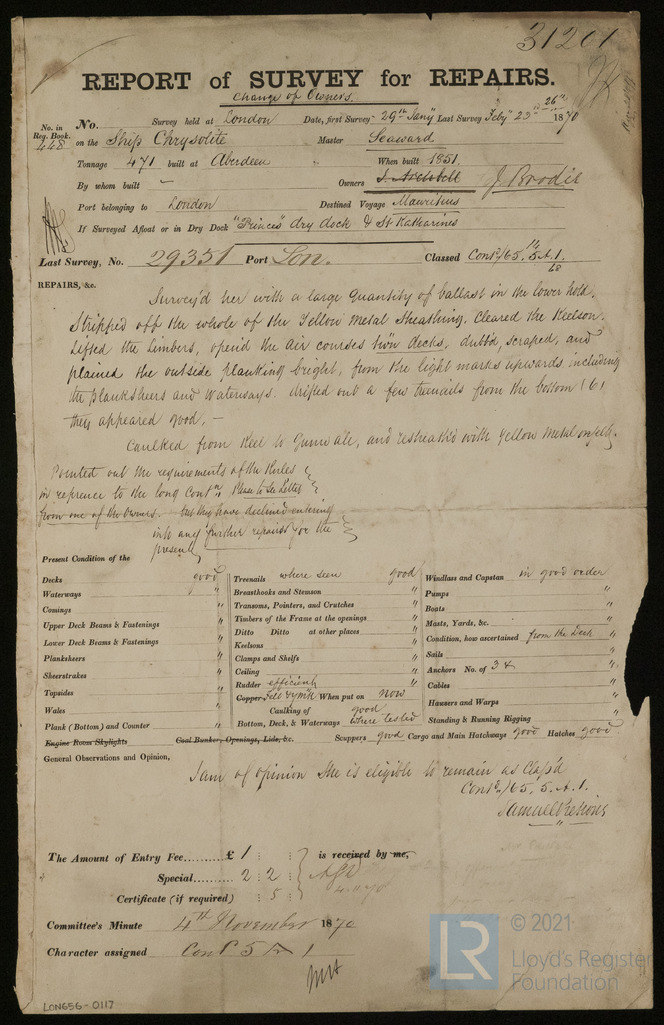 31201
REPORT of SURVEY for REPAIRS.
Change of Owners.
No. in Reg. Book. 448
No. Survey held at London Date, first Survey 29th Jany Last Survey Feby 23rd 26th 1870
on the Ship Chrysolite Master Seaward
Tonnage 471 built at Aberdeen When built 1851
By whom built — Owners J. Brodie
Port belonging to London Destined Voyage Mauritius
If Surveyed Afloat or in Dry Dock "Princes" dry dock & St Katharines
Last Survey, No. 29351 Port Lon. Classed Contd/65, 5.A.1.
REPAIRS, &c.
Survey'd her with a large quantity of ballast in the lower hold.
Stripped off the whole of the Yellow Metal Sheathing, Cleared the Keelson.
Lifted the limbers, open'd the air courses decks, dubb'd, scraped, and
plained the outside planking bright, from the light marks upwards, including
the planksheers and waterways. drifted out a few treenails from the bottom (6)
they appeared good, —
Caulked from Keel to Gunwale, and resheath'd with yellow metal on felt.
Pointed out the requirements of the Rules
in reference to the long Contn, Please to See Letter
from one of the owners. but they have declined entering
into any further repairs for the
present,
Present Condition of the
Decks good
Waterways "
Comings "
Upper Deck Beams & Fastenings "
Lower Deck Beams & Fastenings "
Planksheers "
Sheerstrakes "
Topsides "
Wales "
Plank (Bottom) and Counter "
Engine Room Skylights Coal Bunker, Openings, Lids, &c.
Treenails where seen good
Breasthooks and Stemson "
Transoms, Pointers, and Crutches "
Timbers of the Frame at the openings "
Ditto Ditto at other places "
Keelsons "
Clamps and Shelfs "
Ceiling "
Rudder efficient "
Copper Felt & YM When put on now
Caulking of good
Bottom, Deck, & Waterways where tested
Windlass and Capstan in good order
Pumps "
Boats "
Masts, Yards, &c. "
Condition, how ascertained from the Deck
Sails "
Anchors No. of 3 & "
Cables "
Hausers and Warps "
Standing & Running Rigging "
Scuppers good Cargo and Main Hatchways good Hatches good
General Observations and Opinion,
I am of opinion she is eligible to remain as Class'd
Contd/65, 5.A.1.
The Amount of Entry Fee.......... £ 1 : : is received by me,
Special.......... 2 : 2 :
Certificate (if required) : 5 :
Committee's Minute 4th November 1870
Character assigned Contd 5 A 1
LON656-0117
LR
© 2021
Lloyd's Register
Foundation